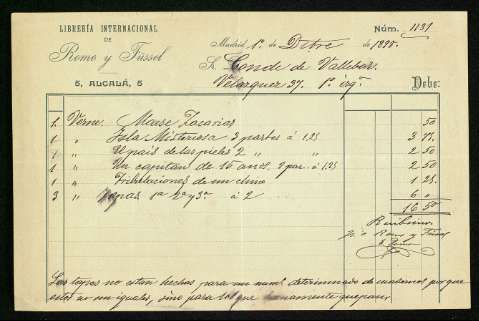 LIBRERÍA INTERNACIONAL
DE
Romo y Füssel
5, ALCALÁ, 5
Núm. 1131
Madrid 1º de Dbre de 1898.
Sr. Conde de Valle
Velazquez 37. 1º izqª
Debe:
1. Verne. Maese Zacarias 50
1 " Isla Misteriosa 3 partes á 1,25 3 75
1 " El pais de las pieles 2 " " 2 50
1 " Un capitan de 15 anos, 2 par. á 1,25 2 50
1 " Tribulaciones de un chino 1 25
3 " Tapas 1ª 2ª y 3ª á 2 6 "
16 50
Recibimos
Romo y Füssel
Las tapas no estan hechas para un num. determinado de cuadernos porque
estos no son iguales, sino para los que buenamente quepan.